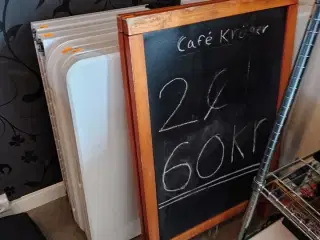 Café Kröger
2€
60kr